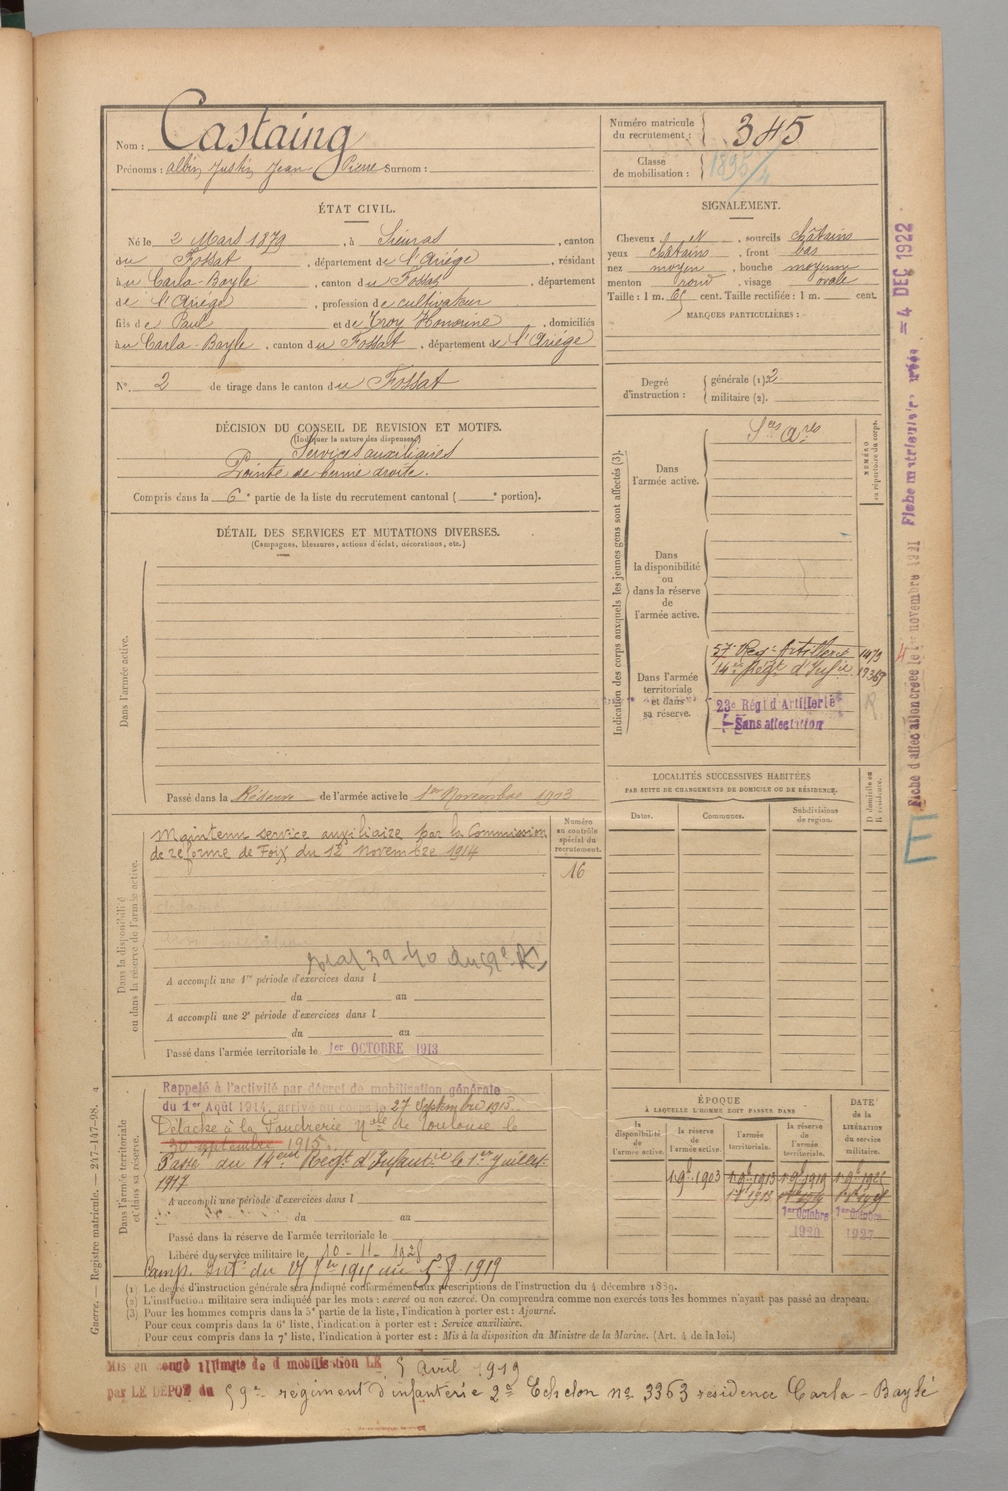 Nom : Castaing
Prénoms : albin Justin Jean Pierre Surnom :
Numéro matricule du recrutement : 345
Classe de mobilisation : 1896/4
ÉTAT CIVIL.
Né le 2 Mars 1879, à Sieuras, canton
du Fossat, département de l'Ariége, résidant
à au Carla-Bayle, canton du Fossat, département
de l'Ariége, profession de cultivateur
fils de Paul et de Troy Honorine, domiciliés
au Carla-Bayle, canton du Fossat, département de l'Ariége
N° 2 de tirage dans le canton du Fossat
SIGNALEMENT.
Cheveux N, sourcils châtains
yeux châtains, front bas
nez moyen, bouche moyenne
menton rond, visage ovale
Taille : 1 m. 65 cent. Taille rectifiée : 1 m. cent.
MARQUES PARTICULIÈRES :
Degré d'instruction : générale (1) 2
militaire (2).
DÉCISION DU CONSEIL DE REVISION ET MOTIFS.
(Indiquer la nature des dispenses)
Services auxiliaires
Pointe de hernie droite.
Compris dans la 6e partie de la liste du recrutement cantonal ( e portion).
DÉTAIL DES SERVICES ET MUTATIONS DIVERSES.
(Campagnes, blessures, actions d'éclat, décorations, etc.)
Dans l'armée active.
Passé dans la Réserve de l'armée active le 1er Novembre 1903
Indication des corps auxquels les jeunes gens sont affectés (3).
NUMÉRO au répertoire du corps.
Dans l'armée active.
Dans
la disponibilité
ou
dans la réserve
de
l'armée active.
Dans l'armée
territoriale
et dans
sa réserve.
57e Reg. Artillerie 1473
14e Régt d'Infie 19369
23e Régt d'Artillerie
Sans affectation
LOCALITÉS SUCCESSIVES HABITÉES
PAR SUITE DE CHANGEMENTS DE DOMICILE OU DE RÉSIDENCE.
Dates.
Communes.
Subdivisions de région.
D domicile ou R résidence.
Numéro au contrôle spécial du recrutement.
16
Dans la disponibilité
ou dans la réserve de l'armée active.
Maintenu service auxiliaire par la Commission
de réforme de Foix du 12 Novembre 1914
A accompli une 1re période d'exercices dans l
du au
A accompli une 2e période d'exercices dans l
du au
Passé dans l'armée territoriale le 1er OCTOBRE 1913
Dans l'armée territoriale
et dans sa réserve.
Rappelé à l'activité par décret de mobilisation générale
du 1er Août 1914, arrivé au corps le 27 Septembre 1915.
Détaché à la Poudrerie Nale de Toulouse le
30 septembre 1915.
Passé au 14eme Regt d'Infantrie le 1er Juillet
1917
A accompli une période d'exercices dans l
du au
Passé dans la réserve de l'armée territoriale le
Libéré du service militaire le 10-11-1928
ÉPOQUE
À LAQUELLE L'HOMME DOIT PASSER DANS
la disponibilité de l'armée active.
la réserve de l'armée active.
l'armée territoriale.
la réserve de l'armée territoriale.
DATE de la LIBÉRATION du service militaire.
1er Octobre 1920
1er Octobre 1927
(1) Le degré d'instruction générale sera indiqué conformément aux prescriptions de l'instruction du 4 décembre 1889.
(2) L'instruction militaire sera indiquée par les mots : exercé ou non exercé. On comprendra comme non exercés tous les hommes n'ayant pas passé au drapeau.
(3) Pour les hommes compris dans la 5e partie de la liste, l'indication à porter est : Ajourné.
Pour ceux compris dans la 6e liste, l'indication à porter est : Service auxiliaire.
Pour ceux compris dans la 7e liste, l'indication à porter est : Mis à la disposition du Ministre de la Marine. (Art. 4 de la loi.)
Mis en congé illimité de démobilisation LE 5 avril 1919
par LE DÉPOT du 59e régiment d'infanterie 2e Echelon no 3363 résidence Carla-Bayle
Guerre. — Registre matricule. — 247-147-98.
Fiche d'affectation créée le 1er novembre 1921 Fiche matriculaire créée = 4 DEC 1922
E